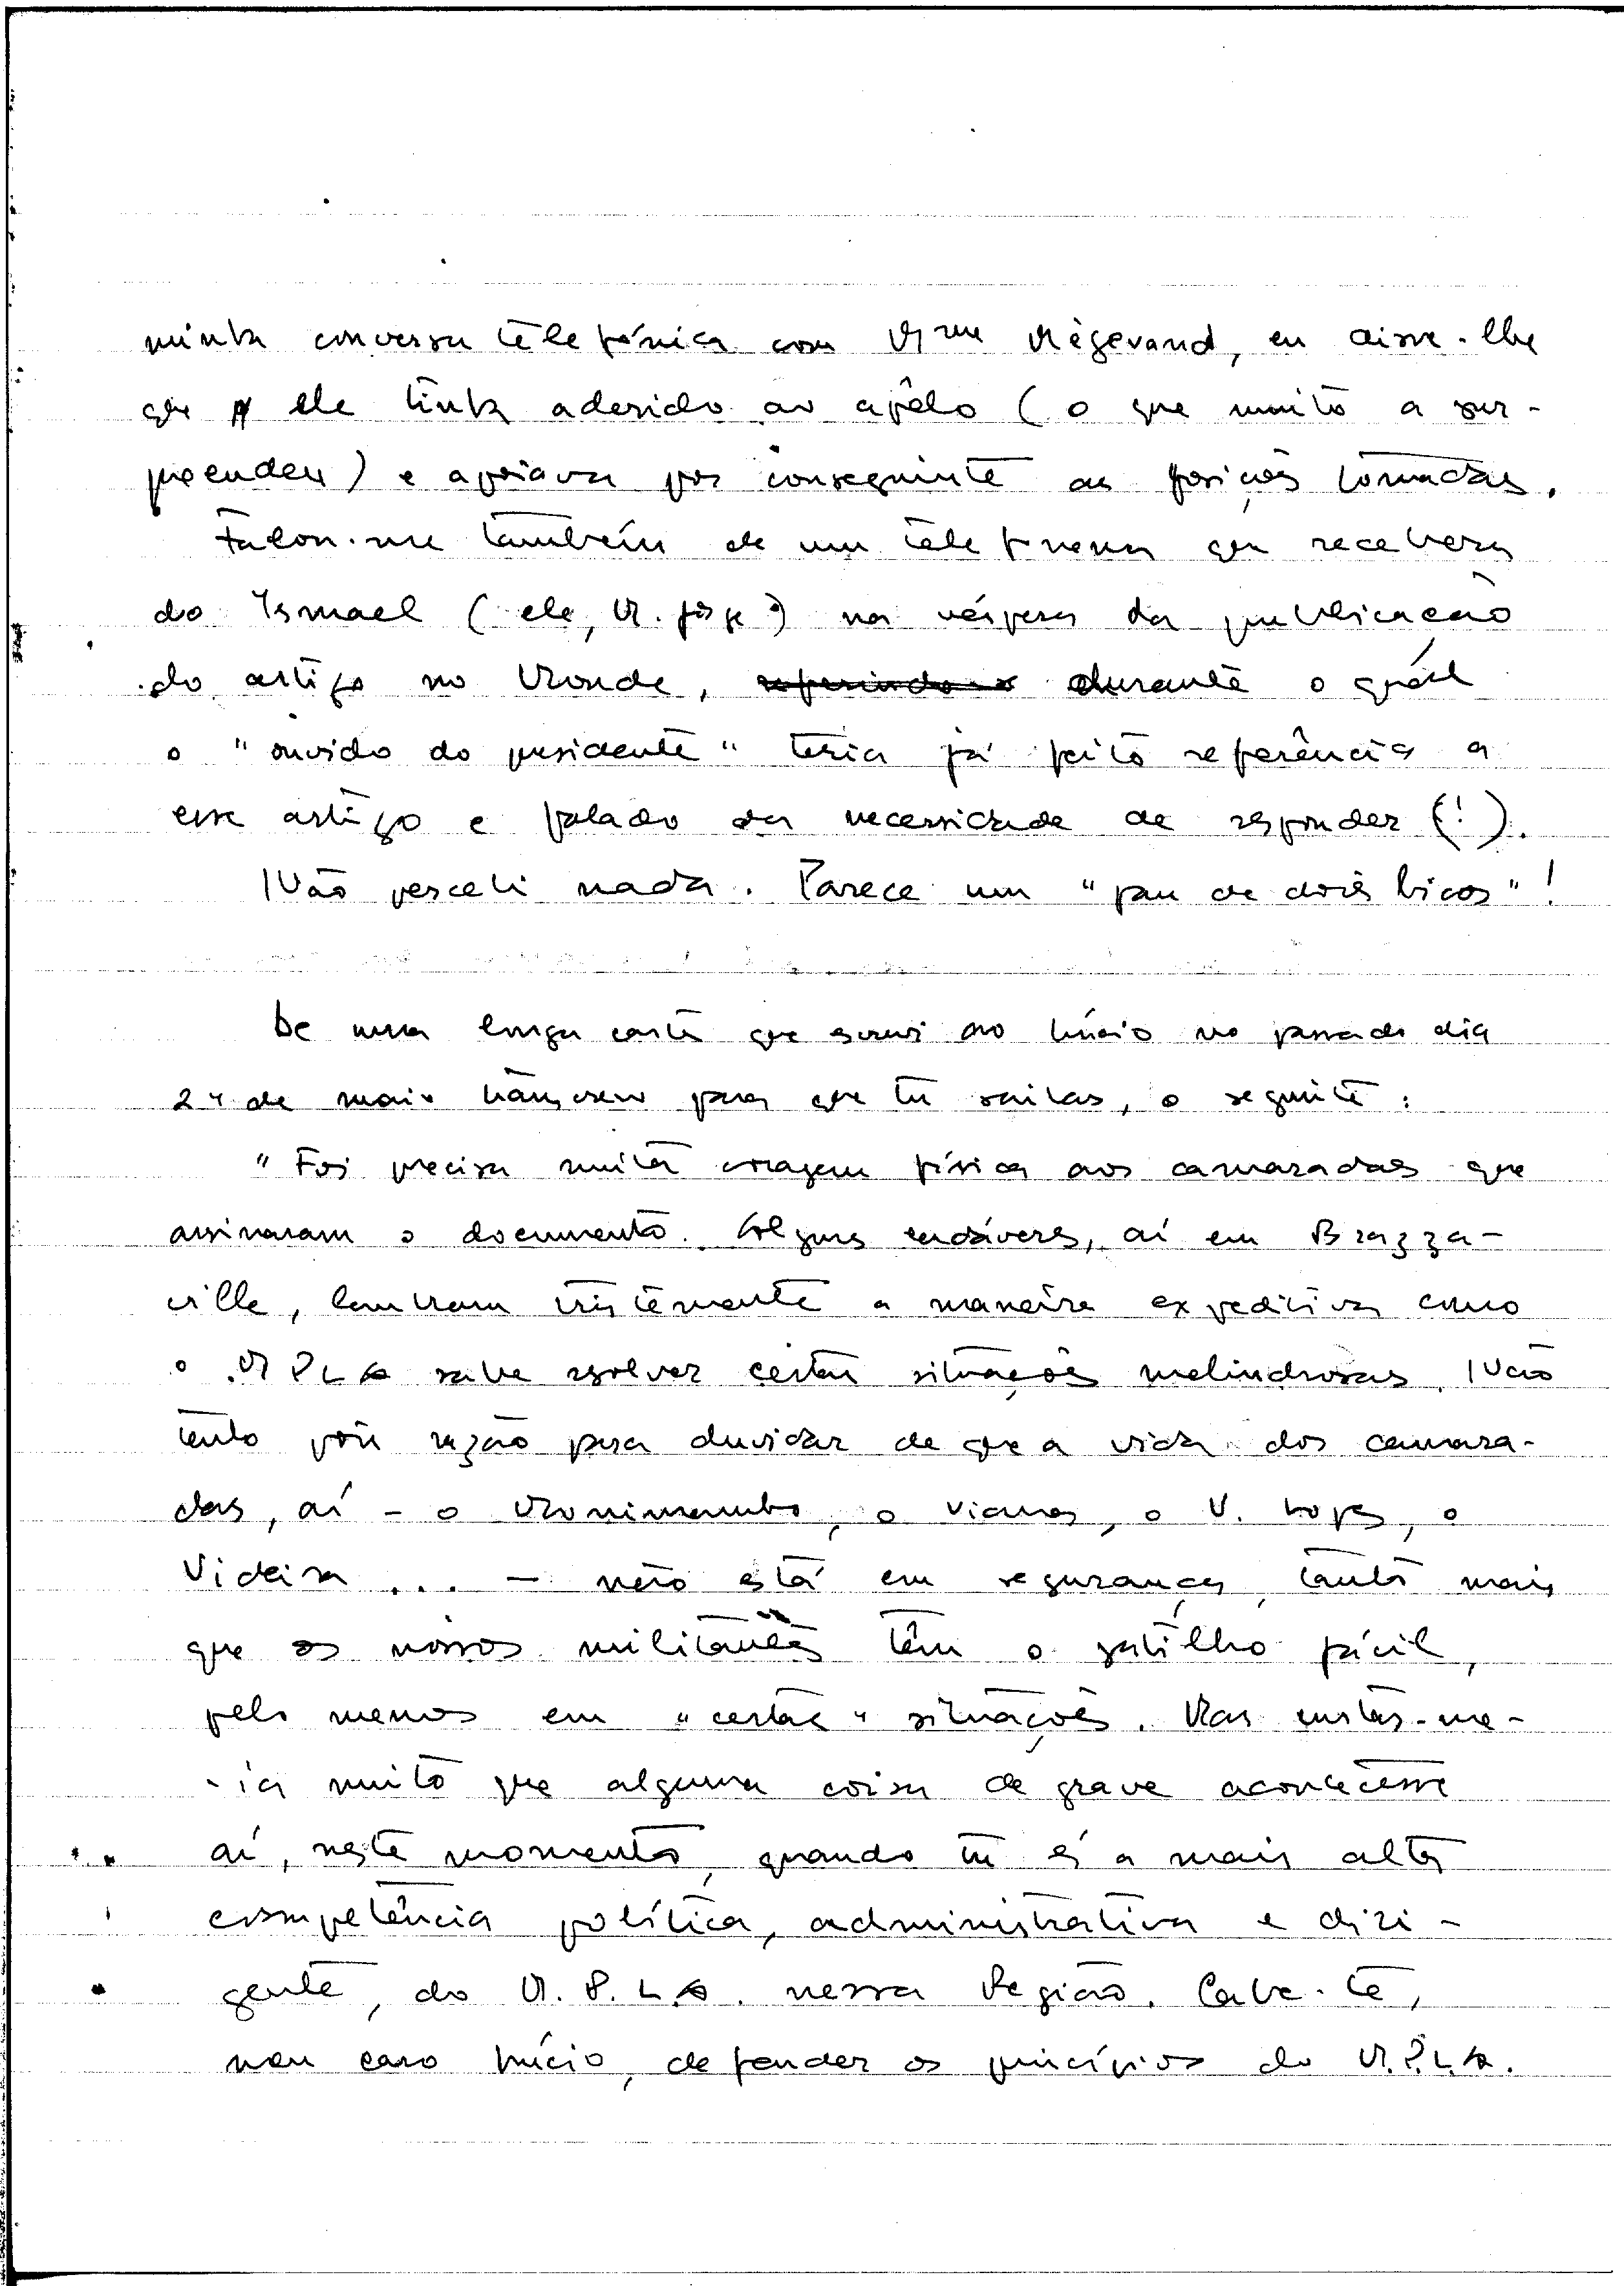 minha conversa telefónica com Mme Mégevand, eu disse-lhe
que ele tinha aderido ao apêlo (o que muito a sur-
preendeu) e apoiava por conseguinte as posições tomadas.
Falou-me também de um telefonema que recebera
do Ismael (ele, M. Jorge?) na véspera da publicação
do artigo no Monde, durante o quál
o "ouvido do presidente" teria já feito referência a
esse artigo e falado da necessidade de responder (!).
Não percebi nada. Parece um "pau de dois bicos"!
De uma longa carta que escrevi ao Lúcio no passado dia
24 de maio transcrevo para que tu saibas, o seguinte:
"Foi precisa muita coragem física aos camaradas que
assinaram o documento. Alguns cadáveres, aí em Brazza-
ville, lembram tristemente a maneira expeditiva como
o MPLA sabe resolver certas situações melindrosas. Não
tenho pois razão para duvidar de que a vida dos camara-
das, aí - o Monimambo, o Viana, o V. Lopes, o
Videira ... - não está em segurança, tanto mais
que os nossos militantes têm o gatilho fácil,
pelo menos em "certas" situações. Mas custar-me-
-ia muito que alguma coisa de grave acontecesse
aí, neste momento, quando tu és a mais alta
competência política, administrativa e diri-
gente, do M.P.L.A. nessa Região. Cabe-te,
meu caro Lúcio, defender os princípios do M.P.L.A.